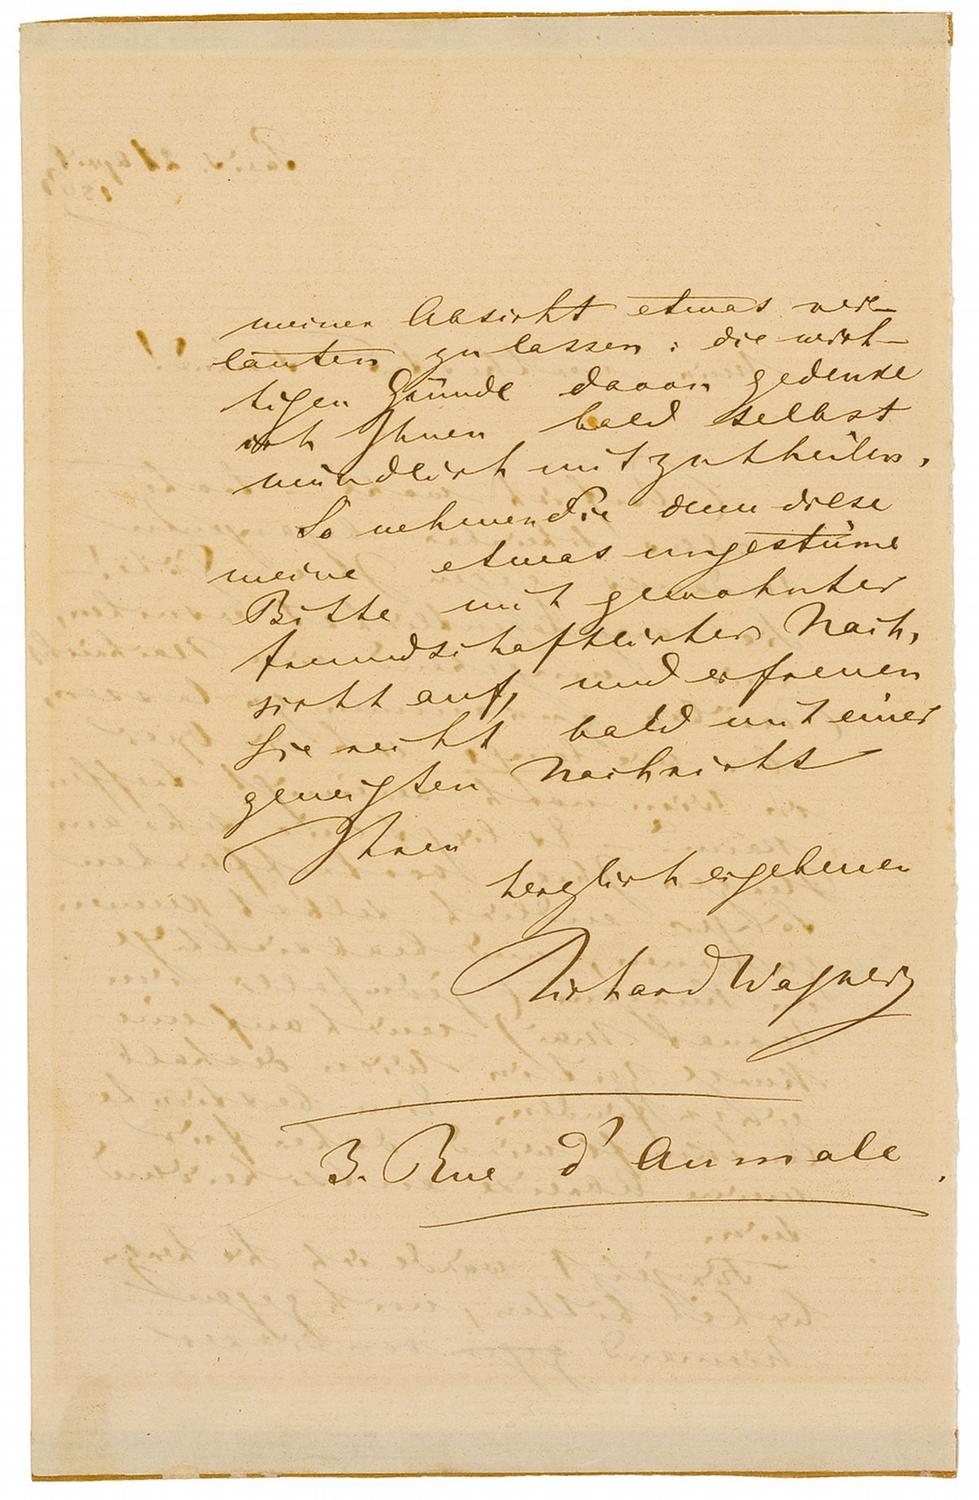 meiner Absicht etwas ver-
lauten zu lassen: die wich-
tigen Gründe davon gedenke
ich Ihnen bald selbst
mündlich mitzutheilen.
So nehmen Sie denn diese
meine etwas ungestüme
Bitte mit gewohnter
freundschaftlicher Nach-
sicht auf, und erfreuen
Sie recht bald mit einer
geneigten Nachricht
Ihren
herzlich ergebenen
Richard Wagner
3. Rue d'Aumale.